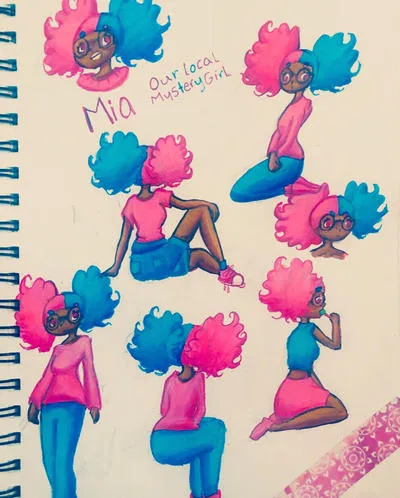 Mia
Our local
Mystery Girl